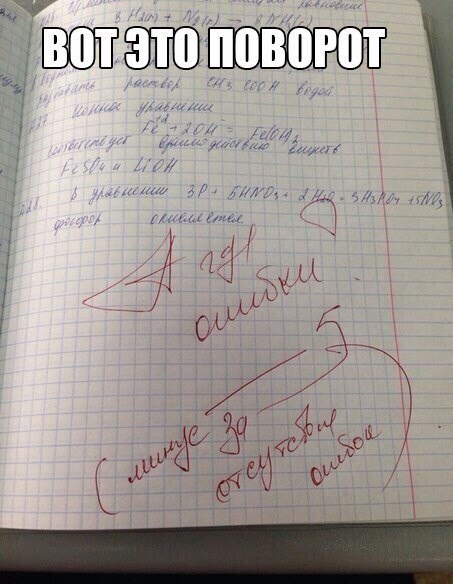 ВОТ ЭТО ПОВОРОТ
3 H2(г) + N2(г) → 2 NH3(г)
раствор CH3COOH водой
Ионное уравнение
Fe+2 + 2OH- = Fe(OH)2
соответствует взаимодействию веществ
FeSO4 и LiOH
В уравнении 3P + 5HNO3 + 2H2O = 3H3PO4 + 5NO
фосфор окисляется
А где
ошибки
5-
(минус за
отсутствие
ошибок